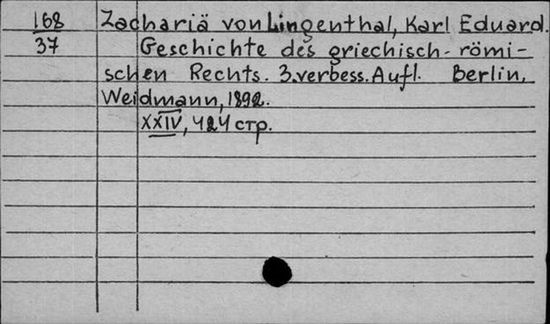 168 Zachariä von Lingenthal, Karl Eduard.
37 Geschichte des griechisch-römi-
schen Rechts. 3.verbess. Aufl. Berlin,
Weidmann, 1892.
XXIV, 424 стр.